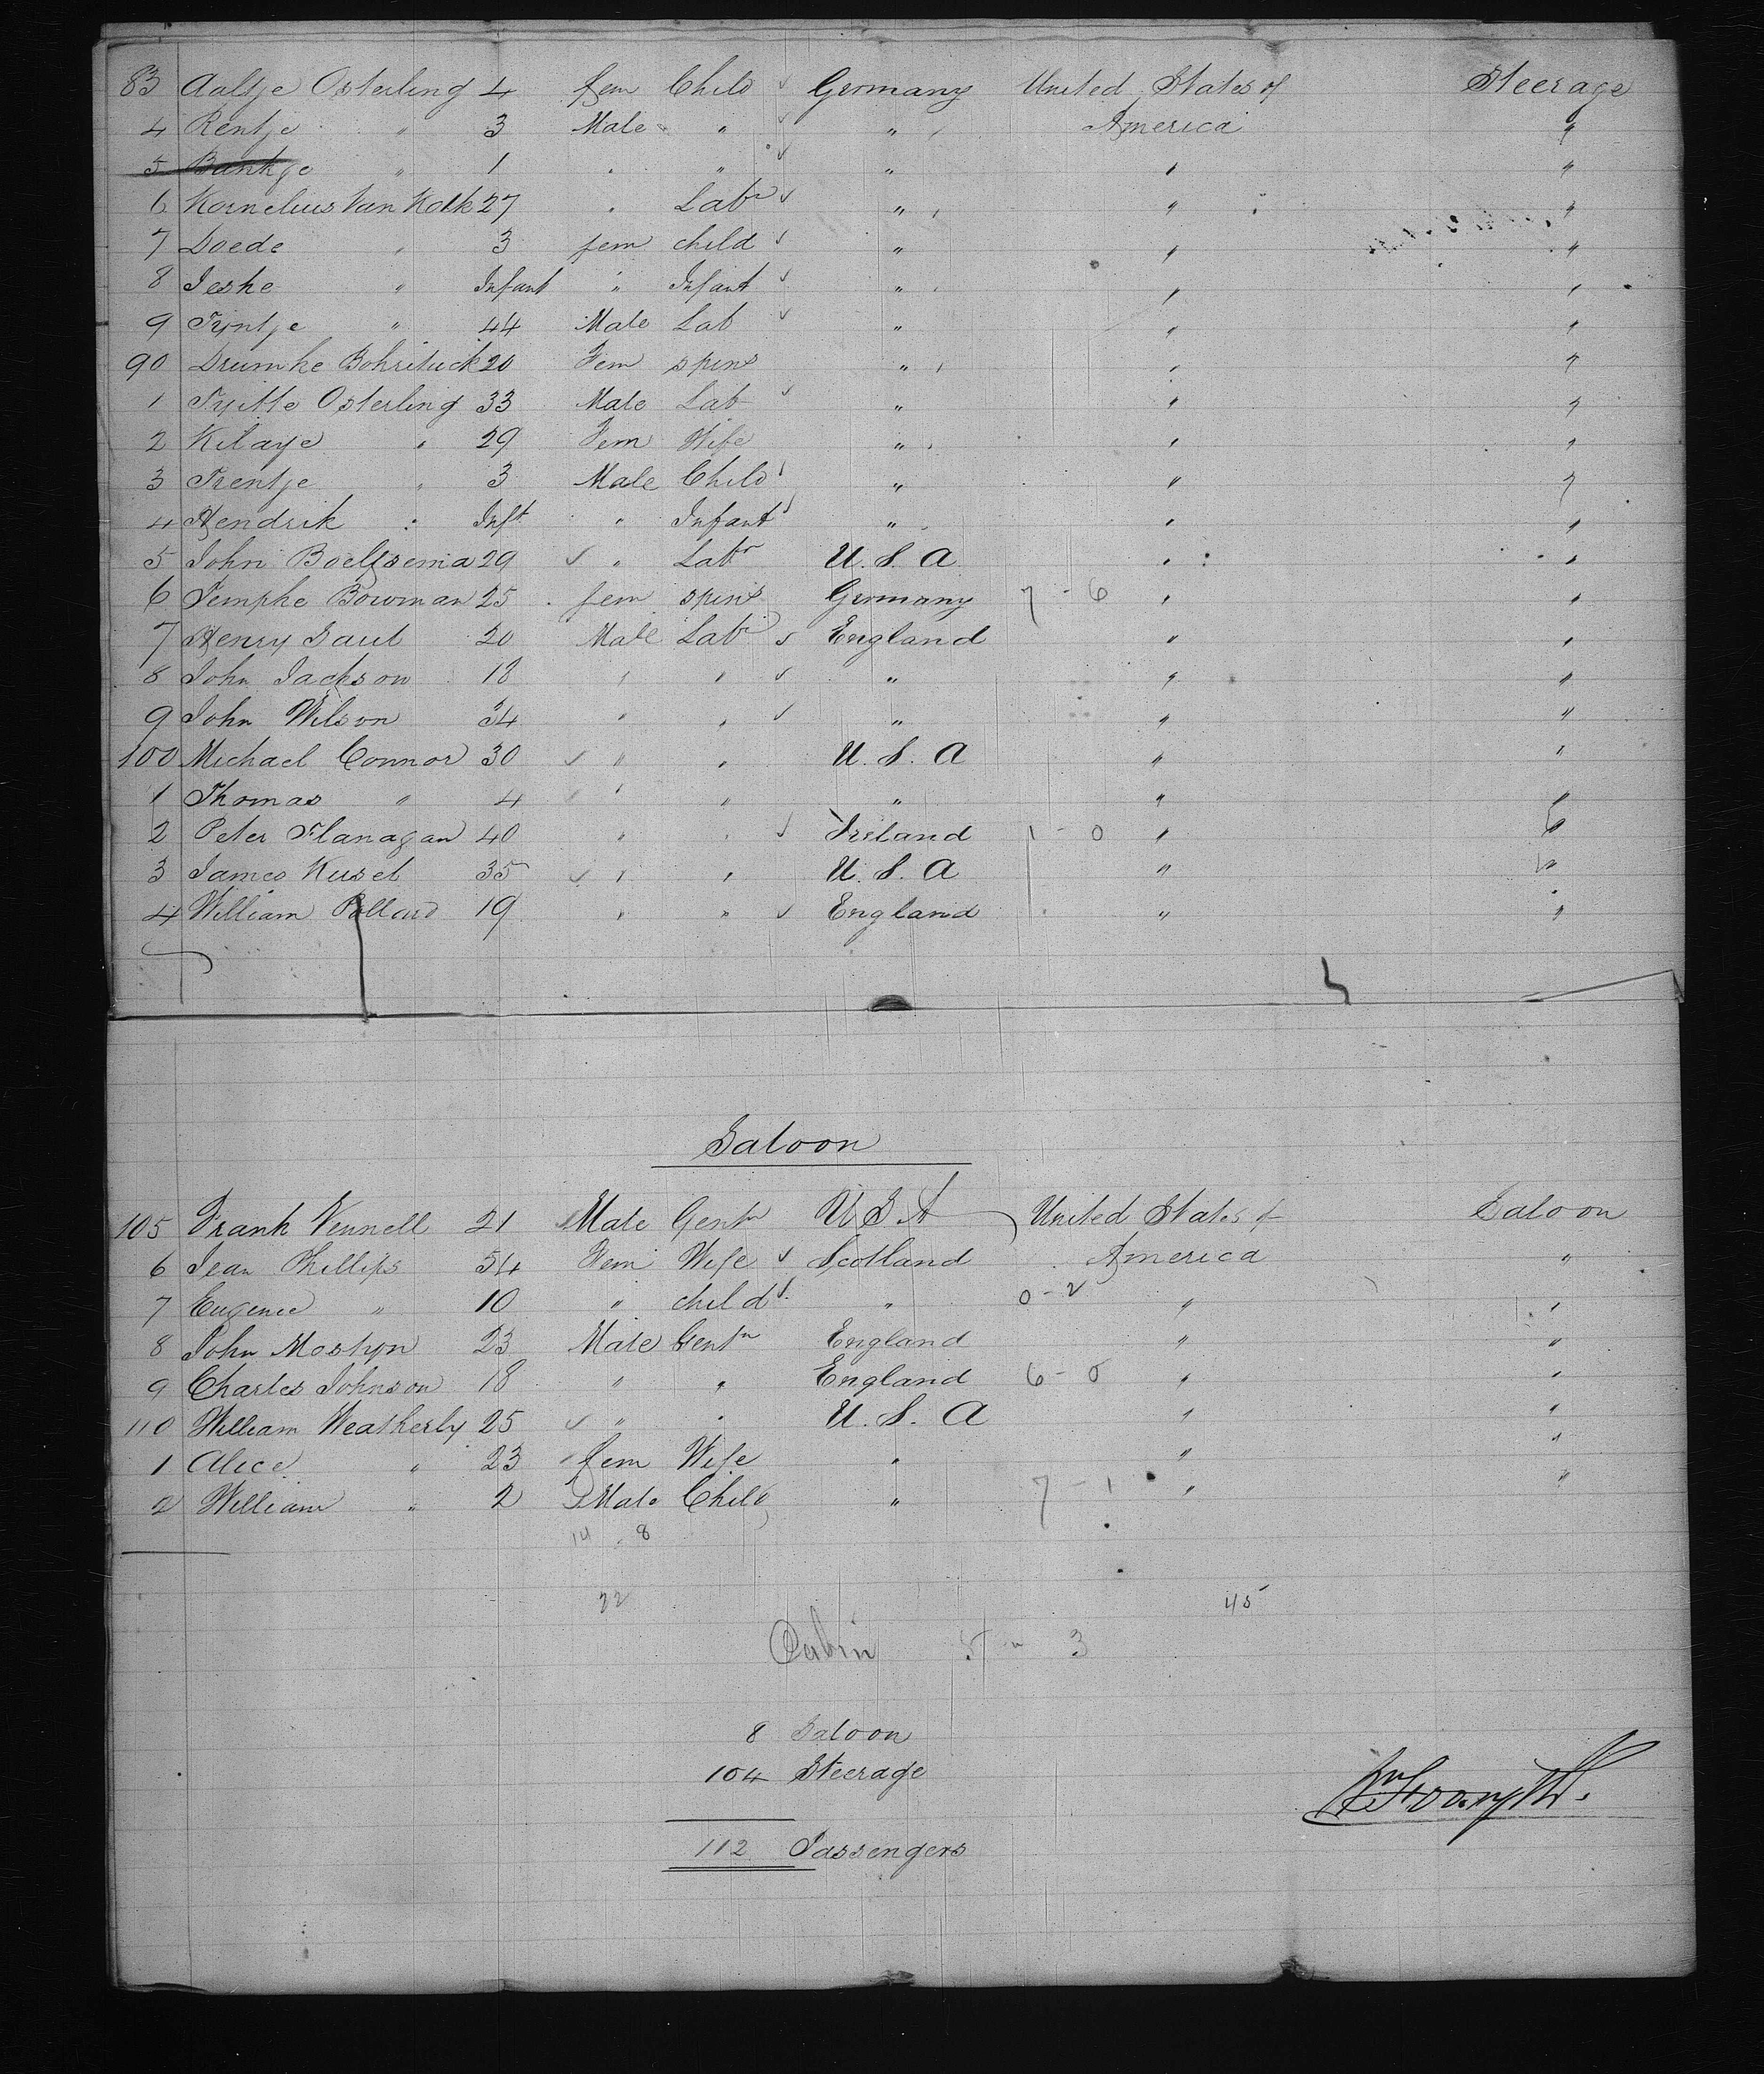 83 Aaltje Osterling 4 fem Child Germany United States of Steerage
4 Rentje " 3 Male " " America "
5 Bankje " 1 " " " " "
6 Kornelius Van Kolk 27 " Labr " " "
7 Doede " 3 fem child " " "
8 Jeske " Infant " Infant " " "
9 Tryntje " 44 Male Lab " " "
90 Drumke Bohrituck 20 Fem spins " " "
1 Tjitte Osterling 33 Male Lab " " "
2 Kitaye " 29 Fem Wife " " "
3 Trentje " 3 Male Child " " "
4 Hendrik " Inft " Infant " " "
5 John Boelssema 29 " Labr U.S.A " "
6 Temphe Bowman 25 fem spins Germany 7 - 6 " "
7 Henry Saul 20 Male Labr England " "
8 John Jackson 18 " " " " "
9 John Wilson 34 " " " " "
100 Michael Connor 30 " " U.S.A " "
1 Thomas " 4 " " " " "
2 Peter Flanagan 40 " " Ireland 1 - 0 " "
3 James Kusel 35 " " U.S.A " "
4 William Pollard 19 " " England " "
Saloon
105 Frank Vennell 21 Male Gentn U S A United States of Saloon
6 Jean Phillips 54 Fem Wife Scotland America "
7 Eugenie " 10 " child " 0 - 2 " "
8 John Mostyn 23 Male Gentn England " "
9 Charles Johnson 18 " " England 6 - 0 " "
110 William Weatherly 25 " " U.S.A " "
1 Alice " 23 fem Wife " " "
2 William " 2 Male Child " 7 - 1 " "
14 . 8
22 45
Cabin 5 " 3
8 Saloon
104 Steerage
112 Passengers